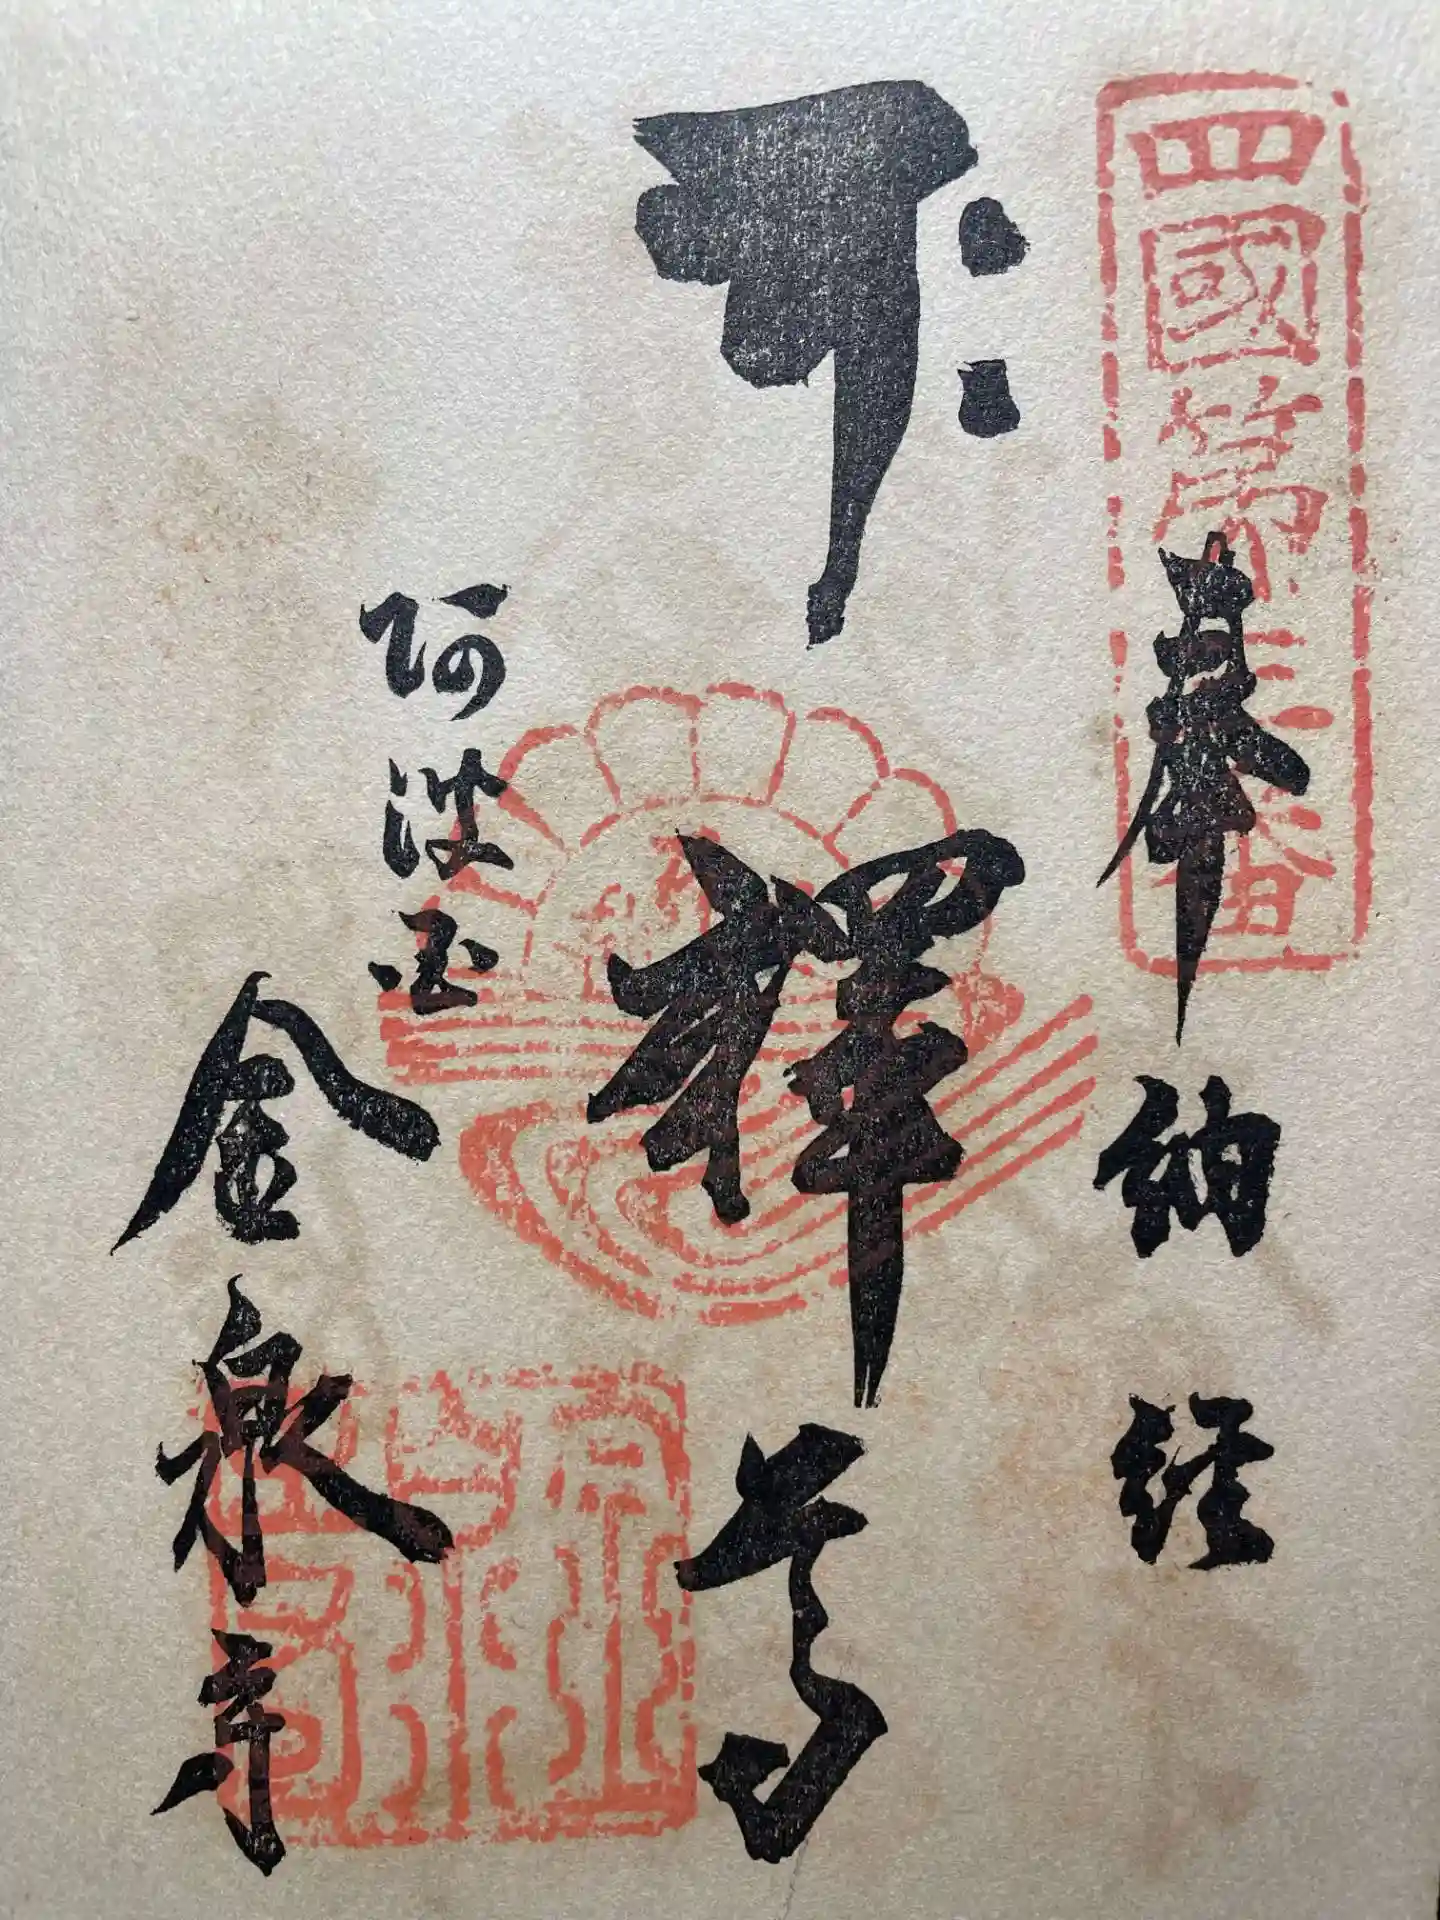 四國第三番
奉納経
釋尊
阿波国
金泉寺